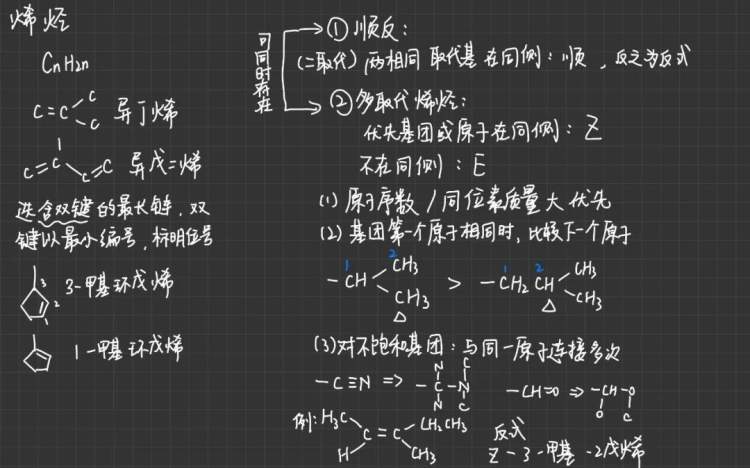 烯烃
CnH2n
C=C C C 异丁烯
C=C C=C 异戊二烯
选含双键的最长链,双
键以最小编号,标明位号
3 2 1 3-甲基环戊烯
1-甲基环戊烯
可同时存在
① 顺反:
(二取代) 两相同取代基在同侧:顺,反之为反式
② 多取代烯烃:
优先基团或原子在同侧:Z
不在同侧:E
(1) 原子序数/同位素质量大优先
(2) 基团第一个原子相同时,比较下一个原子
1 2 1 2
-CH CH3 CH3 > -CH2 CH CH3 CH3
△ △
(3) 对不饱和基团:与同一原子连接多次
-C≡N => -C-N N N C C -CH=O => -CH-O O C
例: H3C H C=C CH2CH3 CH3
反式
Z-3-甲基-2戊烯